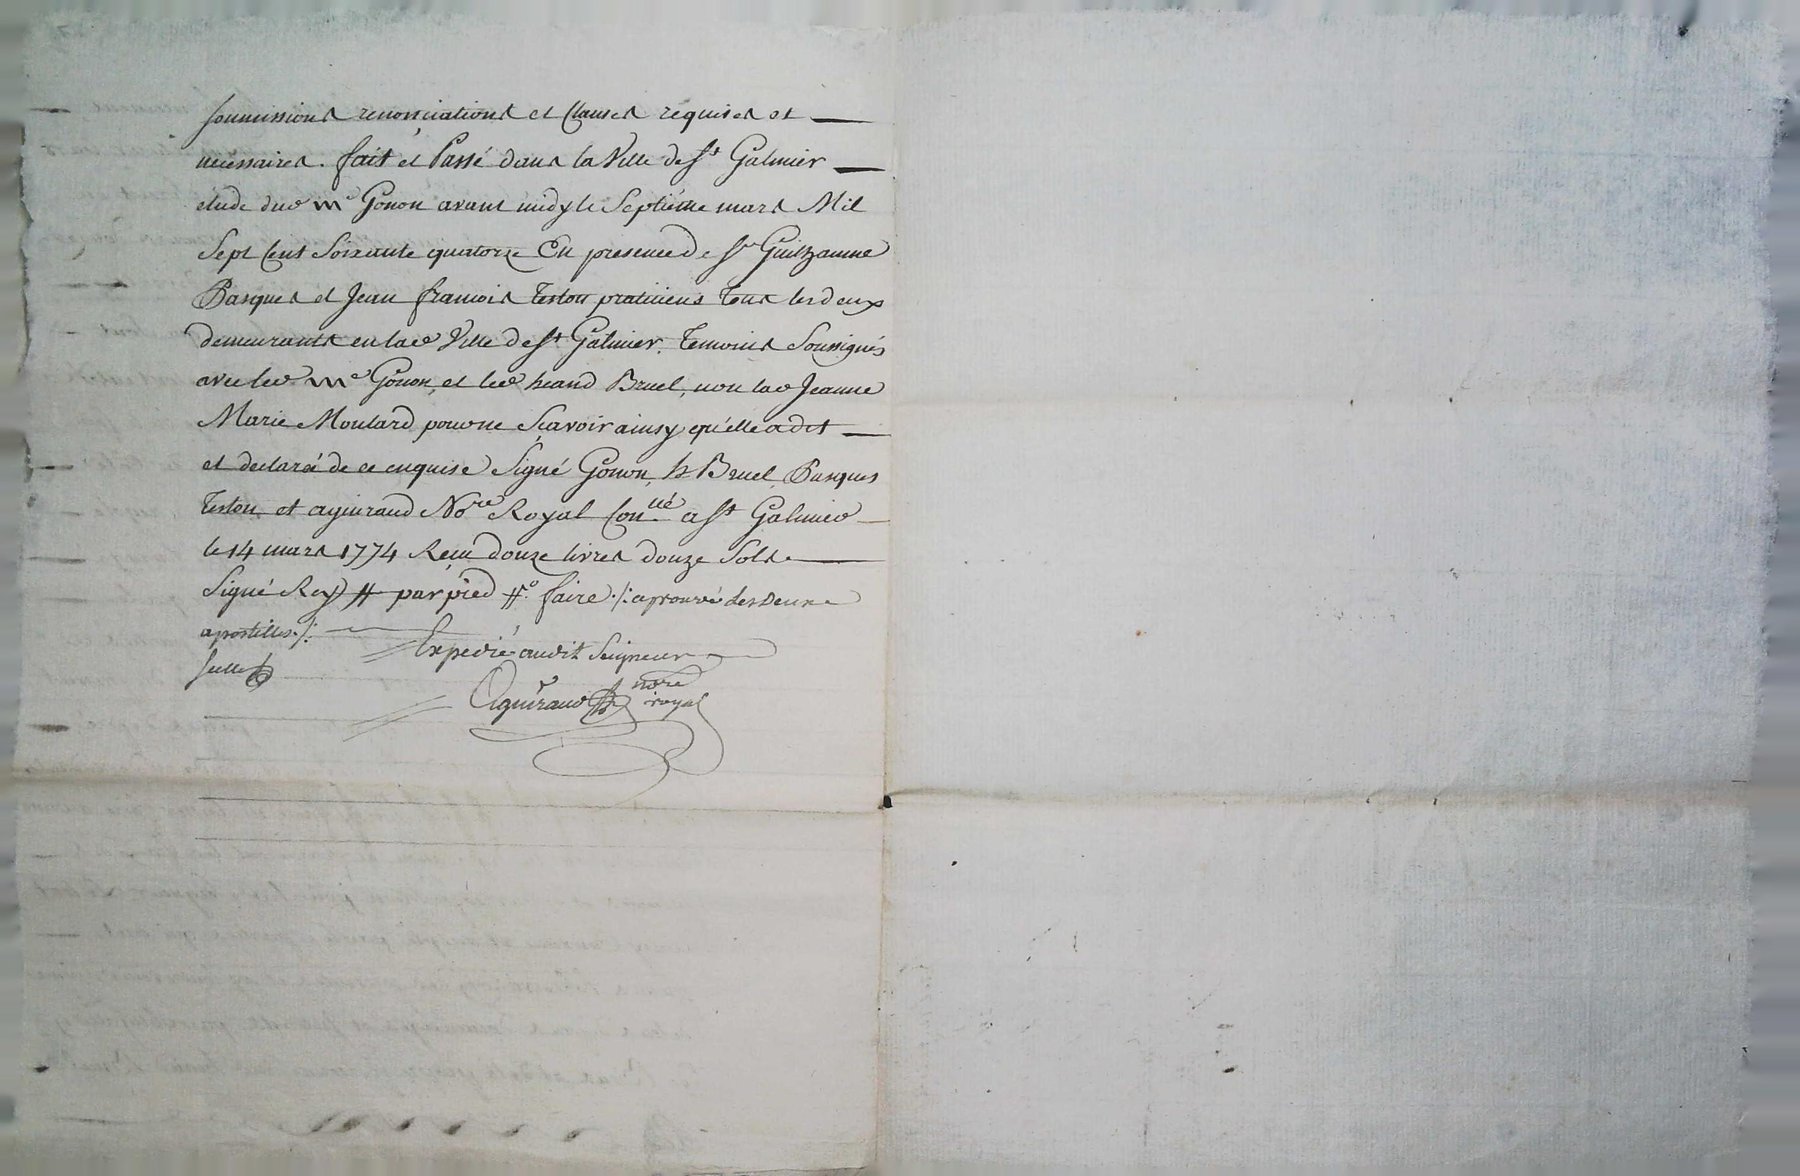 soumissions renonciations et Clauses requises et
necessaires. fait et Passé dans la Ville de St Galmier
etude dud me Gonon avant midy le Septiéme mars Mil
Sept Cent Soixante quatorze En presence de Sr Guilhaume
Pasques et Jean francois Teston praticiens Tous les deux
demeurants en lad Ville de St Galmier. Temoins Soussignés
avec led me Gonon, et led heand Bruel, non lad Jeanne
Marie Moulard pour ne Sçavoir ainsy qu'elle a dit
et declaré de ce enquise Signé Gonon, h Bruel, Pasques
Teston et aguiraud Nore Royal Connué a St Galmier
le 14 mars 1774 Reçu douze livres douze Sols
Signé Rey # par pied #o faire ./: aprouvé les deux
apostilles ./:
Expedié audit Seigneur
Aguiraud nore
royal